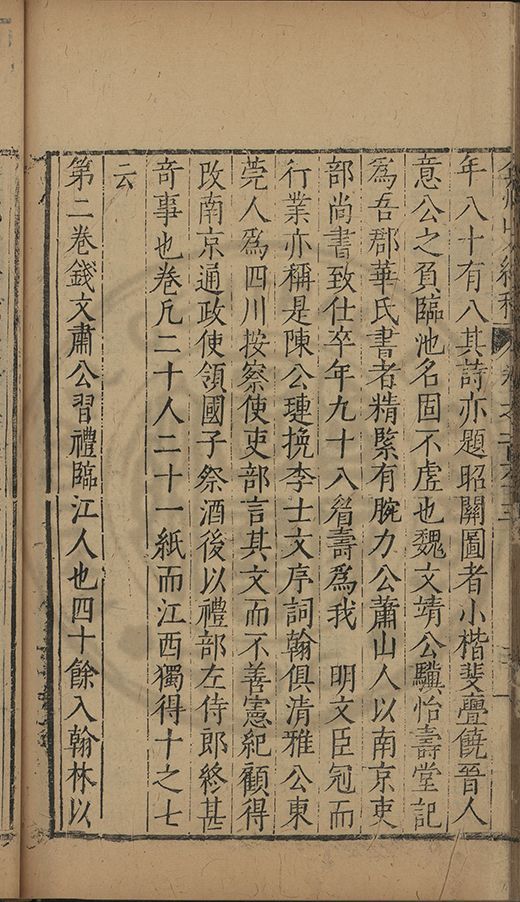 年八十有八其詩亦題昭關圖者小楷斐亹饒晉人
意公之負臨池名固不虛也魏文靖公驥怡壽堂記
爲吾郡華氏書者精緊有腕力公蕭山人以南京吏
部尚書致仕卒年九十八眉壽爲我　明文臣冠而
行業亦稱是陳公璉挽李士文序詞翰俱清雅公東
莞人爲四川按察使吏部言其文而不善憲紀顧得
改南京通政使領國子祭酒後以禮部左侍郎終甚
奇事也卷凡二十人二十一紙而江西獨得十之七
云
第二卷錢文肅公習禮臨江人也四十餘入翰林以